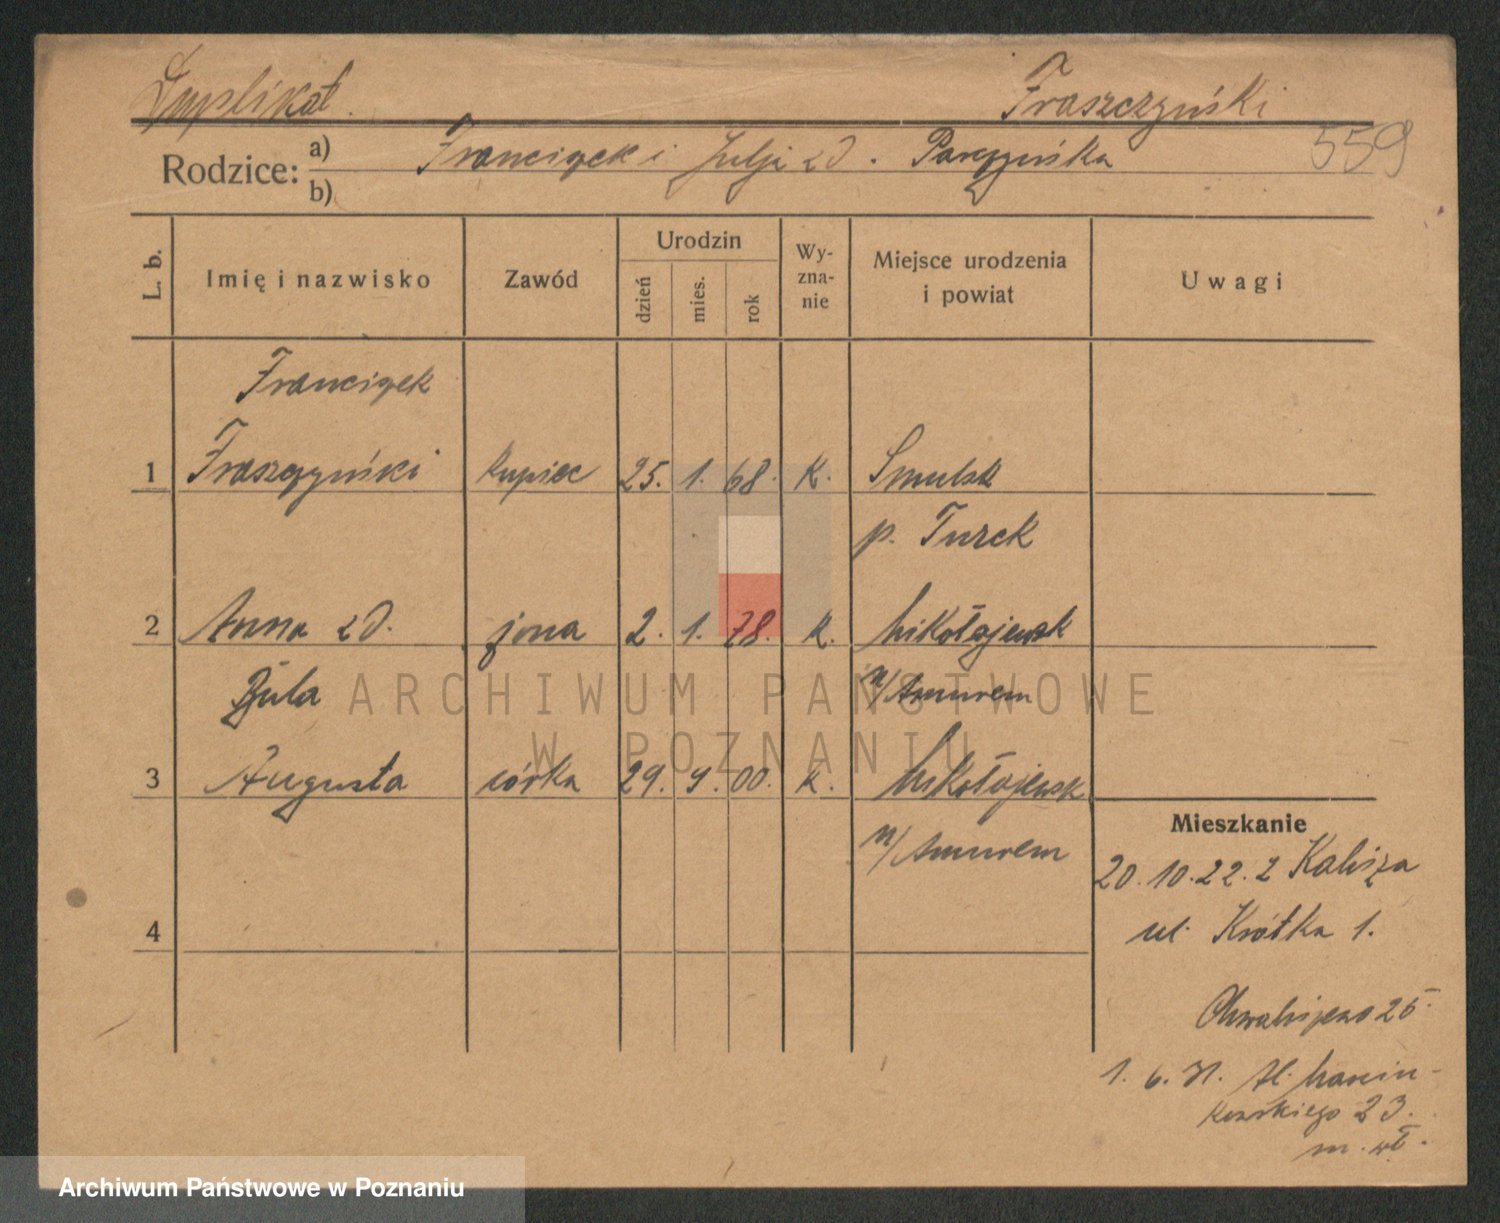 Duplikat. Fraszczyński
559
Rodzice: a) Franciszek i Julji zd. Parczyńska
b)
L. b. Imię i nazwisko Zawód Urodzin dzień mies. rok Wy-zna-nie Miejsce urodzenia i powiat Uwagi
Franciszek
1 Fraszczyński kupiec 25. 1. 68. K. Smulsk
p. Turek
2 Anna zd. żona 2. 1. 78. K. Mikołajewsk
n/Amurem
3 Augusta córka 29. 9. 00. K. Mikołajewsk
n/Amurem
4
Mieszkanie
20.10.22. z Kalisza
ul. Krótka 1.
25
1. 6. 31. Al. Marcin-
kowskiego 23.
m. wł.
ARCHIWUM PAŃSTWOWE
W POZNANIU
Archiwum Państwowe w Poznaniu